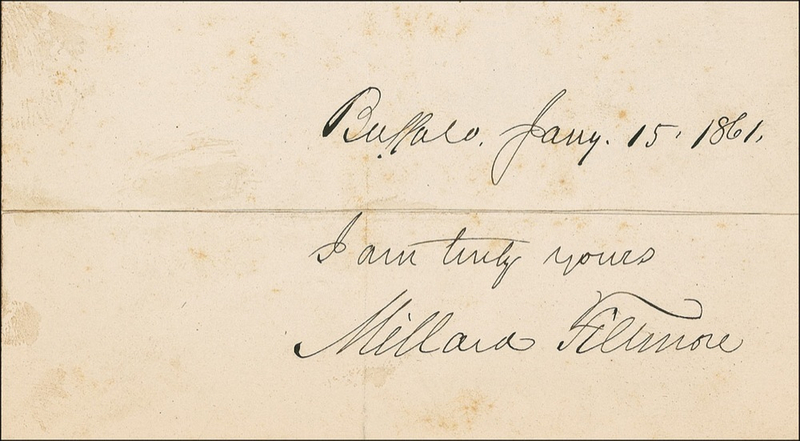 Buffalo. Jany. 15. 1861.
I am truly yours
Millard Fillmore